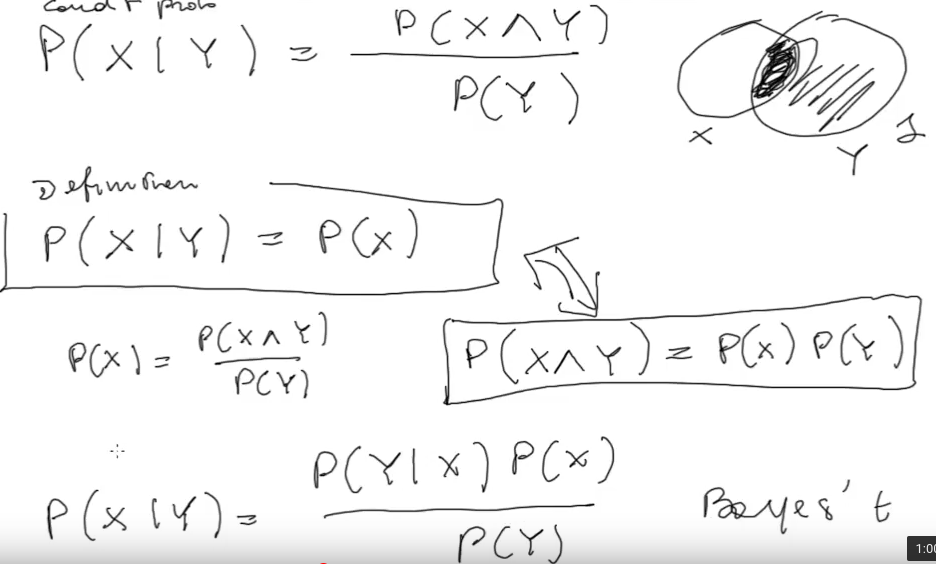 P(X|Y) = P(X∧Y) / P(Y)
X
Y
Definition
P(X|Y) = P(X)
P(X) = P(X∧Y) / P(Y)
P(X∧Y) = P(X) P(Y)
P(X|Y) = P(Y|X) P(X) / P(Y)
Bayes' t